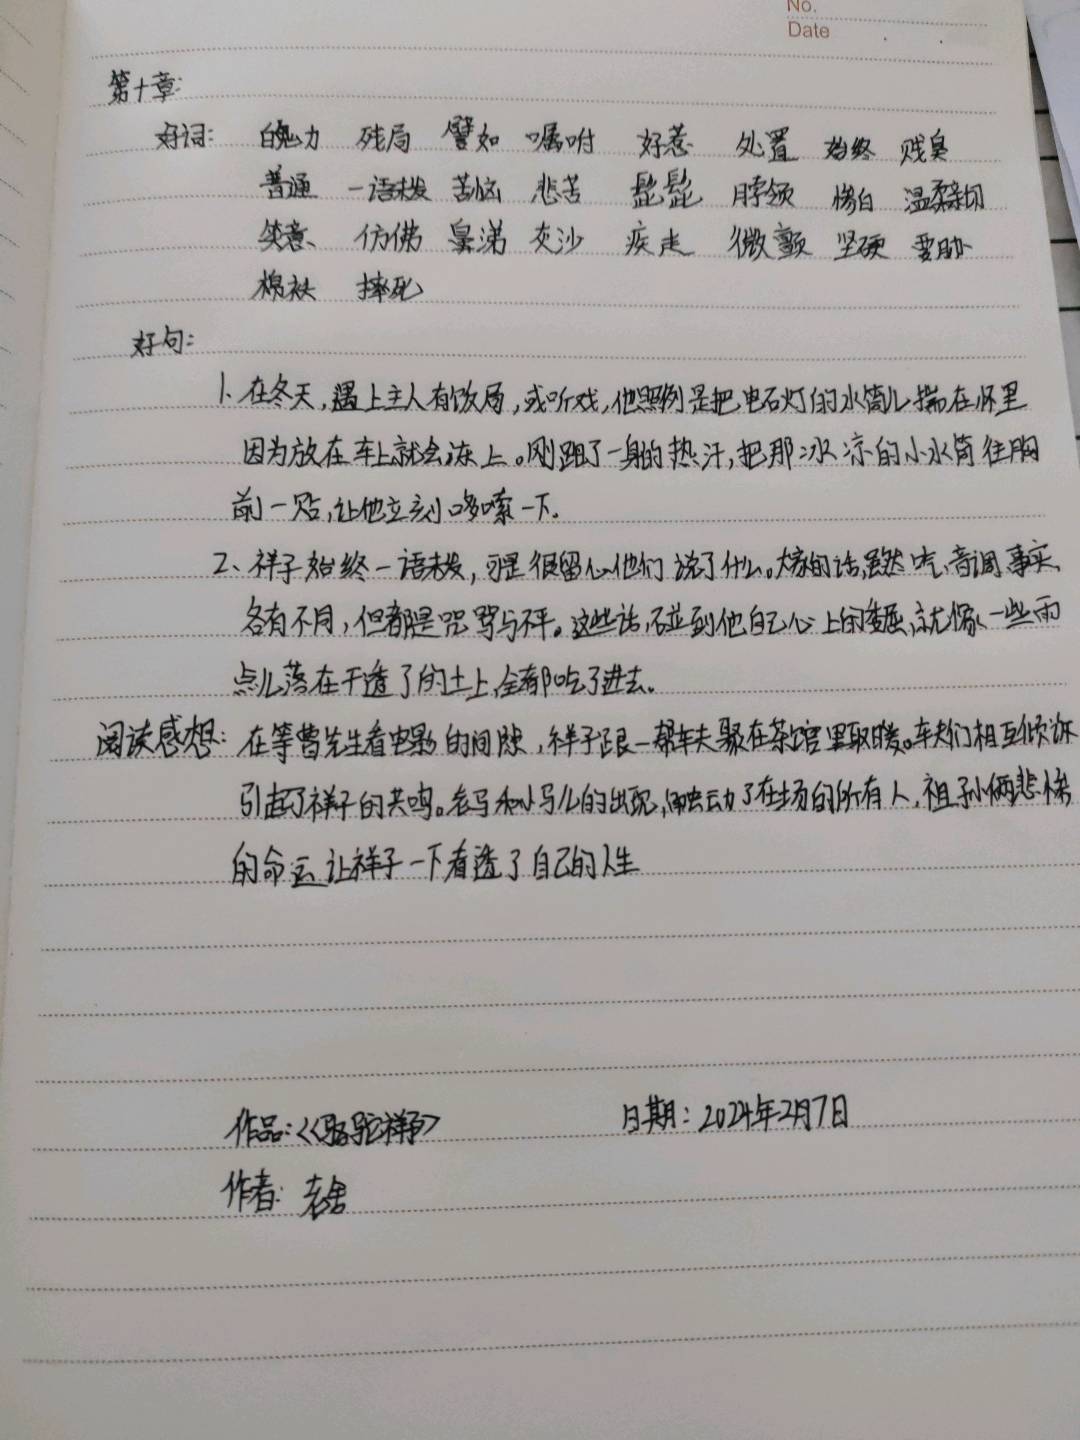 No.
Date
第十章:
好词: 魄力 残局 譬如 嘱咐 好惹 处置 始终 贱臭
普通 一语未发 苦恼 悲苦 髭髭 脖领 惨白 温柔亲切
笑意 仿佛 鼻涕 灰沙 疾走 微颤 坚硬 要胁
棉袄 摔死
好句:
1. 在冬天,遇上主人有饭局,或听戏,他照例是把电石灯的水筒儿揣在怀里
因为放在车上就会冻上。刚跑了一身的热汗,把那冰凉的小水筒往胸
前一贴,让他立刻哆嗦一下.
2、祥子始终一语未发,可是很留心他们说了什么。大家的话,虽然口气,音调,事实,
各有不同,但都是咒骂与不平。这些话,碰到他自己心上的委屈,就像一些雨
点儿落在干透了的土上,全都吃了进去。
阅读感想: 在等曹先生看电影的间隙,祥子跟一帮车夫聚在茶馆里取暖。车夫们相互倾诉
引起了祥子的共鸣。老马和小马儿的出现,触动了在场的所有人,祖孙俩悲惨
的命运让祥子一下看透了自己的人生
作品:<<骆驼祥子>> 日期: 2024年2月7日
作者: 老舍